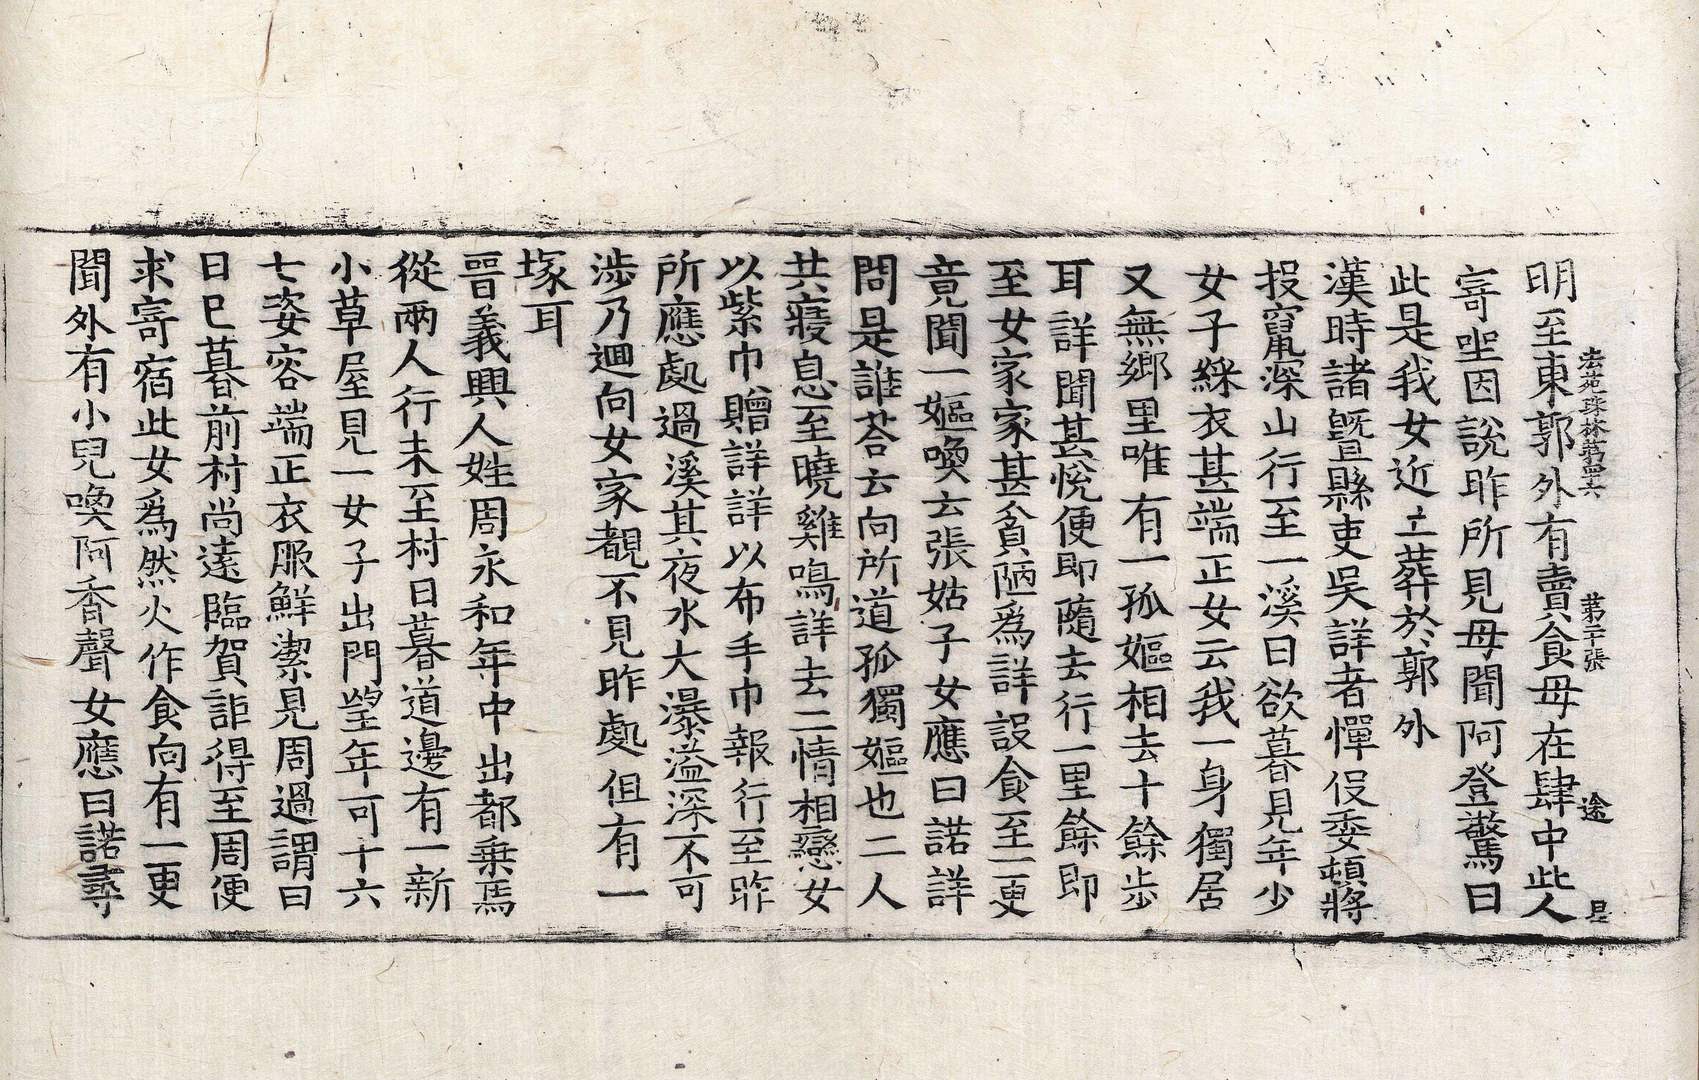 法苑珠林第四六 第二十張 途 昆
明至東郭外有賣食母在肆中此人
寄坐因說昨所見母聞阿登驚曰
此是我女近亡葬於郭外
漢時諸曁縣吏吳詳者憚伇委頓將
投竄深山行至一溪日欲暮見年少
女子綵衣甚端正女云我一身獨居
又無鄉里唯有一孤嫗相去十餘步
耳詳聞甚悅便即隨去行一里餘即
至女家家甚貧陋爲詳設食至一更
竟聞一嫗喚云張姑子女應曰諾詳
問是誰荅云向所道孤獨嫗也二人
共寢息至曉雞鳴詳去二情相戀女
以紫巾贈詳詳以布手巾報行至昨
所應處過溪其夜水大瀑溢深不可
涉乃迴向女家覩不見昨處伹有一
塚耳
晉義興人姓周永和年中出都乗馬
從兩人行未至村日暮道邊有一新
小草屋見一女子出門望年可十六
七姿容端正衣服鮮潔見周過謂曰
日已暮前村尚遠臨賀詎得至周便
求寄宿此女爲然火作食向有一更
聞外有小兒喚阿香聲女應曰諾尋